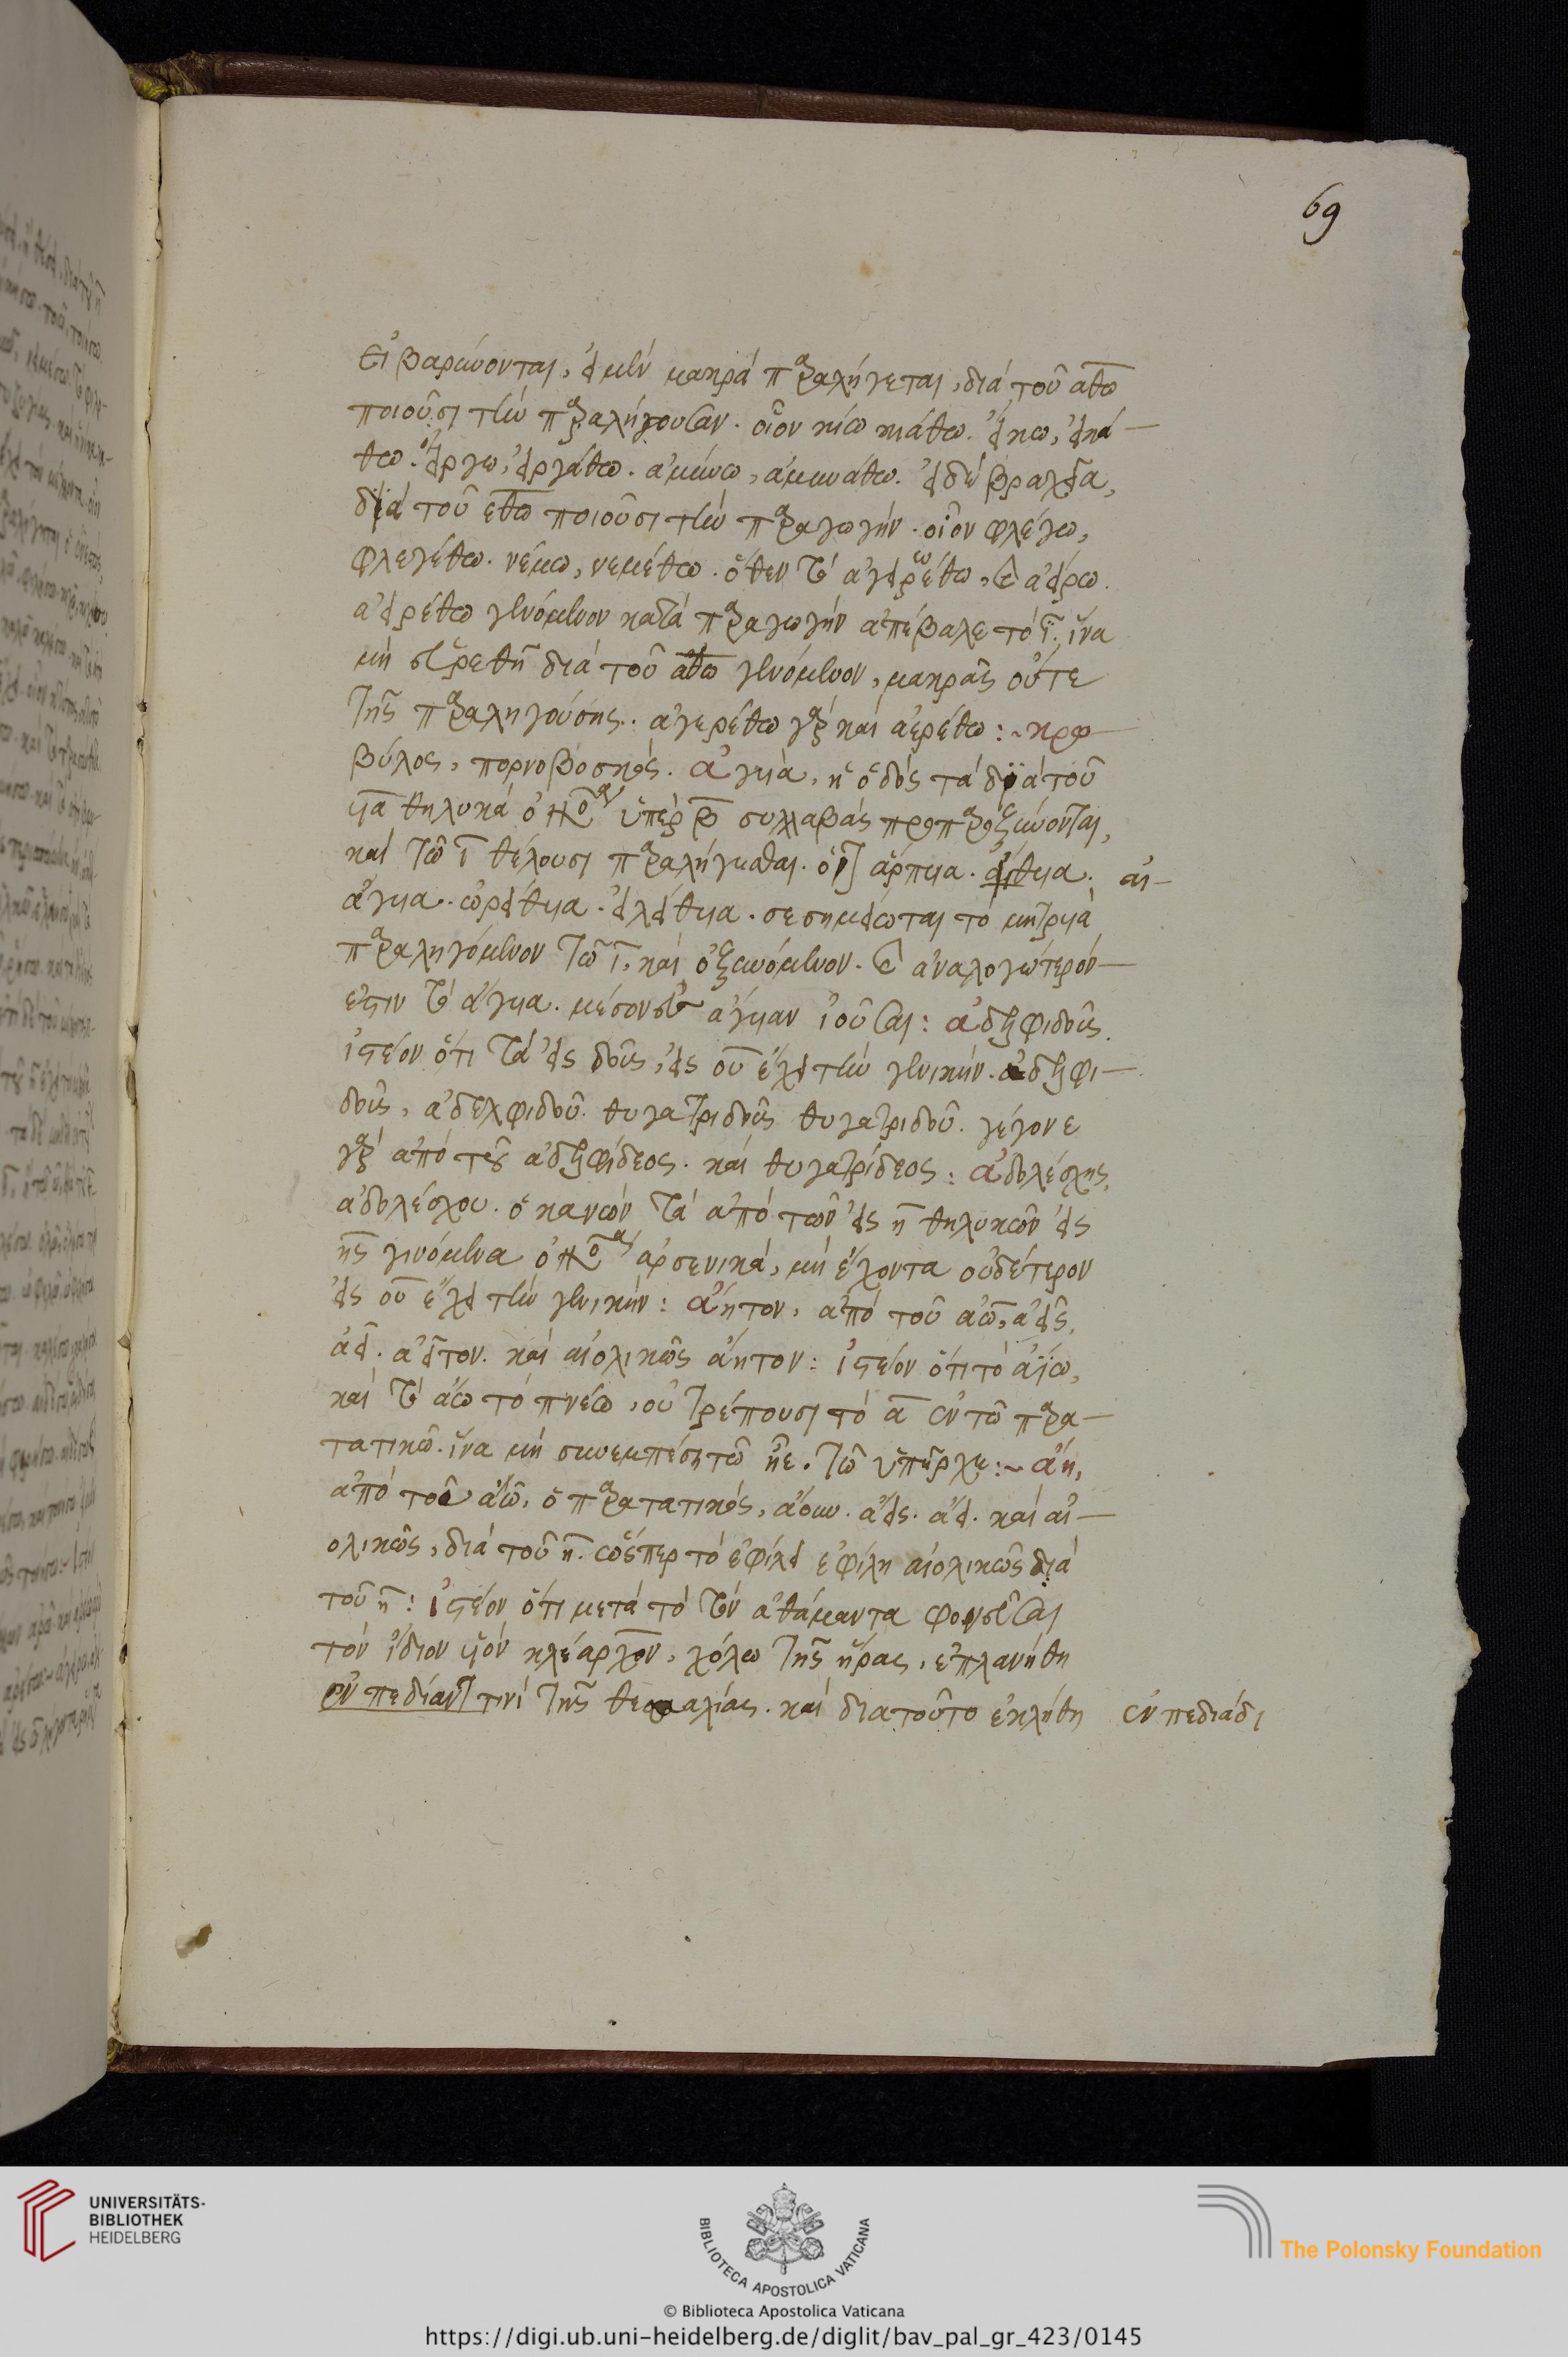 69
εἰ βαρύνονται, εἰ μὲν μακρᾷ παραλήγεται, διὰ τοῦ αθω
ποιοῦσι τὴν παραλήγουσαν. οἷον κίω κιάθω. εἴκω, εἰκά-
θω. εἴργω, εἰργάθω. ἀμύνω, ἀμυνάθω. εἰ δὲ βραχεῖα,
διὰ τοῦ εθω ποιοῦσι τὴν παραγωγήν. οἷον φλέγω,
φλεγέθω. νέμω, νεμέθω. ὅθεν τὸ ἀγείρω
ἀειρέθω γενόμενον κατὰ παραγωγὴν ἀπέβαλε τὸ ι. ἵνα
μὴ εὑρεθῇ διὰ τοῦ αθω γενόμενον, μακρᾶς οὔσης
τῆς παραληγούσης. ἀγερέθω γὰρ καὶ ἀερέθω: ~ κρω-
βύλος, πορνοβοσκός. ἀγυιὰ, ἡ ὁδός τὰ διὰ τοῦ
υια θηλυκὰ ὑπὲρ β συλλαβὰς προπαροξύνονται,
καὶ τῷ ι θέλουσι παραλήγεσθαι. οἷον ἅρπυια. αἴθυια. αἰ-
ἄγυια. ὠρείθυια. εἰλείθυια. σεσημείωται τὸ μητρυιὰ
παραληγόμενον τῷ ι, καὶ ὀξυνόμενον. καὶ ἀναλογώτερόν-
ἐστιν τὸ ἄγυια. μέσον εἰς ἄγυιαν ἰοῦσαι: ἀδελφιδοῦς.
ἰστέον ὅτι τὰ εἰς δοῦς, εἰς ου ἔχει τὴν γενικήν. ἀδελφι-
δοῦς, ἀδελφιδοῦ. θυγατριδοῦς θυγατριδοῦ. γέγονε
γὰρ ἀπὸ τοῦ ἀδελφίδεος. καὶ θυγατρίδεος: ἀδολέσχης,
ἀδολέσχου. ὁ κανών τὰ ἀπὸ τῶν εἰς η θηλυκῶν εἰς
ης γινόμενα ἀρσενικά, μὴ ἔχοντα οὐδέτερον
εἰς ου ἔχει τὴν γενικήν: ἄητον, ἀπὸ τοῦ ἀῶ, ἀεῖς,
ἀεῖ. ἀεῖτον. καὶ αἰολικῶς ἄητον: ἰστέον ὅτι τὸ ἀΐω,
καὶ τὸ ἄω τὸ πνέω, οὐ τρέπουσι τὸ α ἐν τῷ παρα-
τατικῷ. ἵνα μὴ συνεμπέσῃ τῷ ἦε. τῷ ὑπῆρχε: ~ ἄη,
ἀπὸ τοῦ ἀῶ, ὁ παρατατικός, ἄουν. ἄεις. ἄει. καὶ αἰ-
ολικῶς, διὰ τοῦ η. ὥσπερ τὸ ἐφίλει ἐφίλη αἰολικῶς διὰ
τοῦ η: ἰστέον ὅτι μετὰ τὸ τὸν ἀθάμαντα φονεῦσαι
τὸν ἴδιον υἱὸν κλέαρχον, χόλῳ τῆς ἥρας, ἐπλανήθη
ἐν πεδίαντ τινὶ τῆς θεσσαλίας. καὶ διατοῦτο ἐκλήθη ἐν πεδιάδι
UNIVERSITÄTS-
BIBLIOTHEK
HEIDELBERG
BIBLIOTECA APOSTOLICA VATICANA
The Polonsky Foundation
© Biblioteca Apostolica Vaticana
https://digi.ub.uni-heidelberg.de/diglit/bav_pal_gr_423/0145